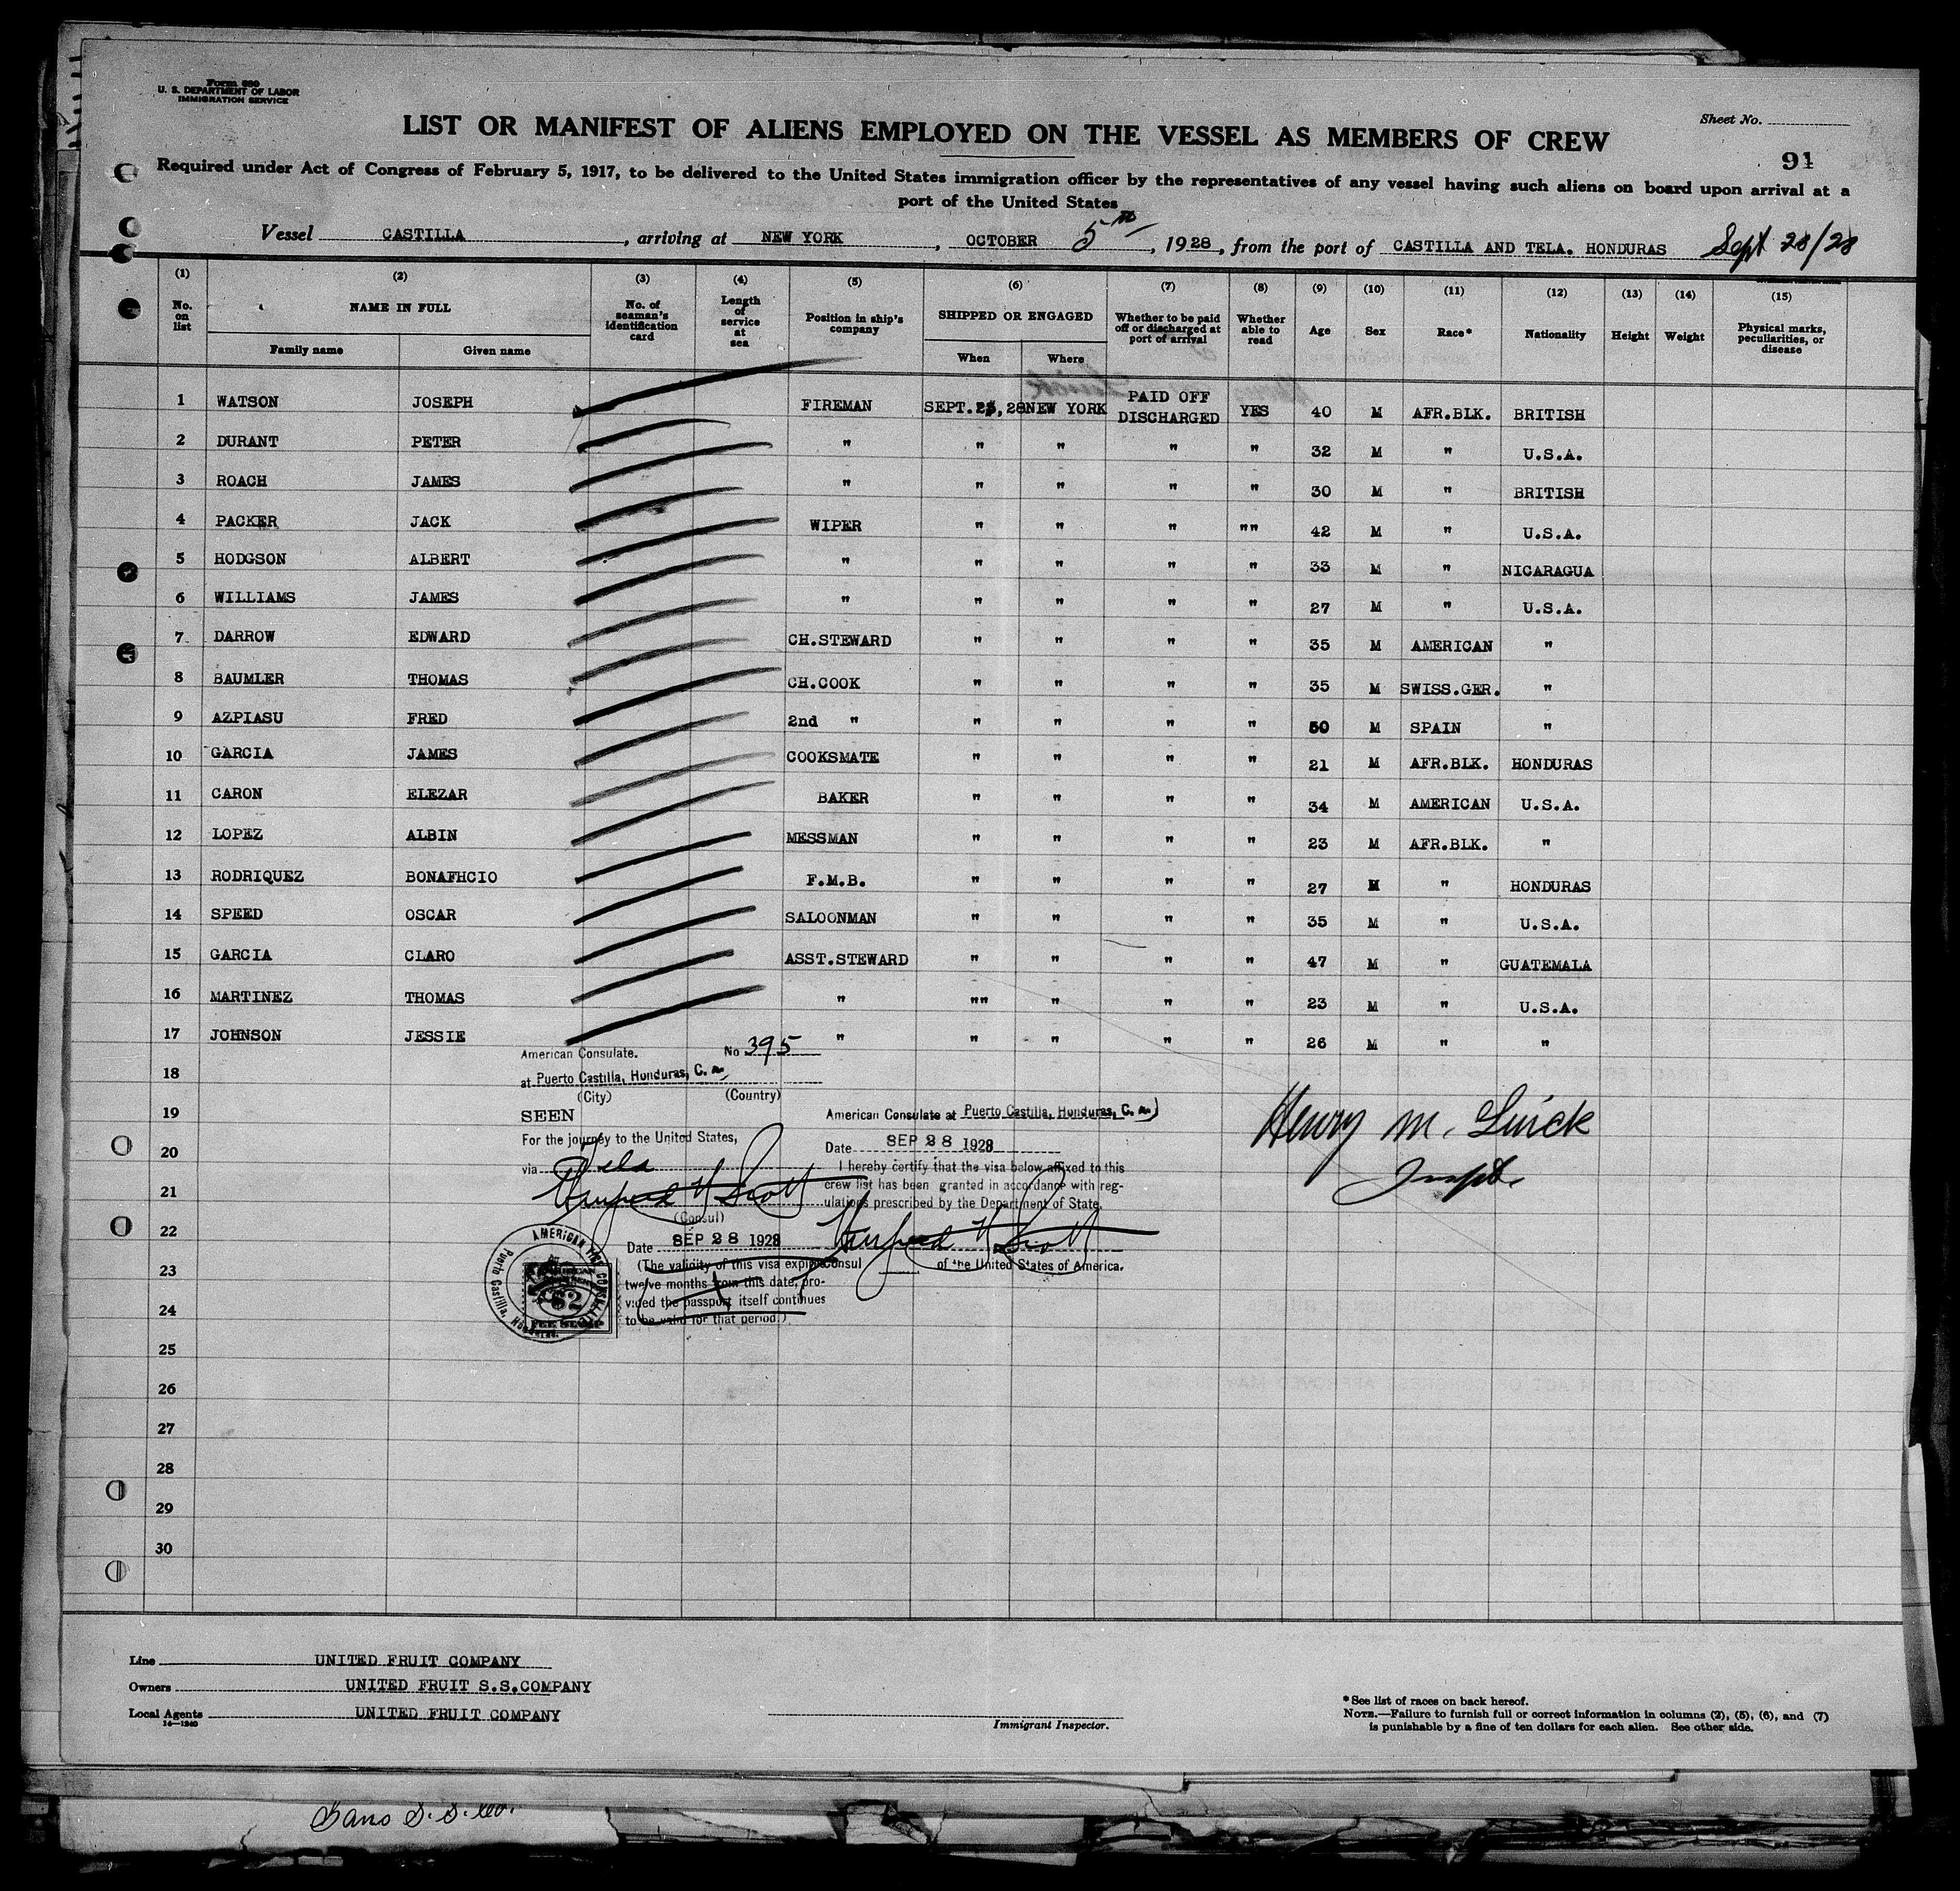 Form 680
U. S. DEPARTMENT OF LABOR
IMMIGRATION SERVICE
Sheet No.
LIST OR MANIFEST OF ALIENS EMPLOYED ON THE VESSEL AS MEMBERS OF CREW
91
Required under Act of Congress of February 5, 1917, to be delivered to the United States immigration officer by the representatives of any vessel having such aliens on board upon arrival at a
port of the United States
Vessel CASTILLA, arriving at NEW YORK, OCTOBER 5th, 1928, from the port of CASTILLA AND TELA. HONDURAS Sept 28/28
(1) (2) (3) (4) (5) (6) (7) (8) (9) (10) (11) (12) (13) (14) (15)
No. on list NAME IN FULL Family name Given name No. of seaman's identification card Length of service at sea Position in ship's company SHIPPED OR ENGAGED When Where Whether to be paid off or discharged at port of arrival Whether able to read Age Sex Race* Nationality Height Weight Physical marks, peculiarities, or disease
1 WATSON JOSEPH FIREMAN SEPT. 28 NEW YORK PAID OFF DISCHARGED YES 40 M AFR.BLK. BRITISH
2 DURANT PETER " " " " " 32 M " U.S.A.
3 ROACH JAMES " " " " " 30 M " BRITISH
4 PACKER JACK WIPER " " " "" 42 M " U.S.A.
5 HODGSON ALBERT " " " " " 33 M " NICARAGUA
6 WILLIAMS JAMES " " " " " 27 M " U.S.A.
7 DARROW EDWARD CH.STEWARD " " " " 35 M AMERICAN "
8 BAUMLER THOMAS CH.COOK " " " " 35 M SWISS.GER. "
9 AZPIASU FRED 2nd " " " " " 50 M SPAIN "
10 GARCIA JAMES COOKSMATE " " " " 21 M AFR.BLK. HONDURAS
11 CARON ELEZAR BAKER " " " " 34 M AMERICAN U.S.A.
12 LOPEZ ALBIN MESSMAN " " " " 23 M AFR.BLK. "
13 RODRIQUEZ BONAFHCIO F.M.B. " " " " 27 M " HONDURAS
14 SPEED OSCAR SALOONMAN " " " " 35 M " U.S.A.
15 GARCIA CLARO ASST.STEWARD " " " " 47 M " GUATEMALA
16 MARTINEZ THOMAS " "" " " " 23 M " U.S.A.
17 JOHNSON JESSIE " " " " " 26 M " "
18
19
20
21
22
23
24
25
26
27
28
29
30
American Consulate. No 395
at Puerto Castilla, Honduras, C. A.
(City) (Country)
SEEN
For the journey to the United States,
via Tela
(Consul)
Date SEP 28 1928
(The validity of this visa expires
twelve months from this date, pro-
vided the passport itself continues
to be valid for that period.)
AMERICAN CONSULAR
Puerto Castilla, Honduras.
$2
FEE STAMP
American Consulate at Puerto Castilla, Honduras, C. A.
Date SEP 28 1928
I hereby certify that the visa below affixed to this
crew list has been granted in accordance with reg-
ulations prescribed by the Department of State.
Consul of the United States of America.
Henry M.
Inspt.
Line UNITED FRUIT COMPANY
Owners UNITED FRUIT S.S.COMPANY
Local Agents UNITED FRUIT COMPANY
14—1240
Immigrant Inspector.
*See list of races on back hereof.
NOTE.—Failure to furnish full or correct information in columns (2), (5), (6), and (7)
is punishable by a fine of ten dollars for each alien. See other side.
S. S.